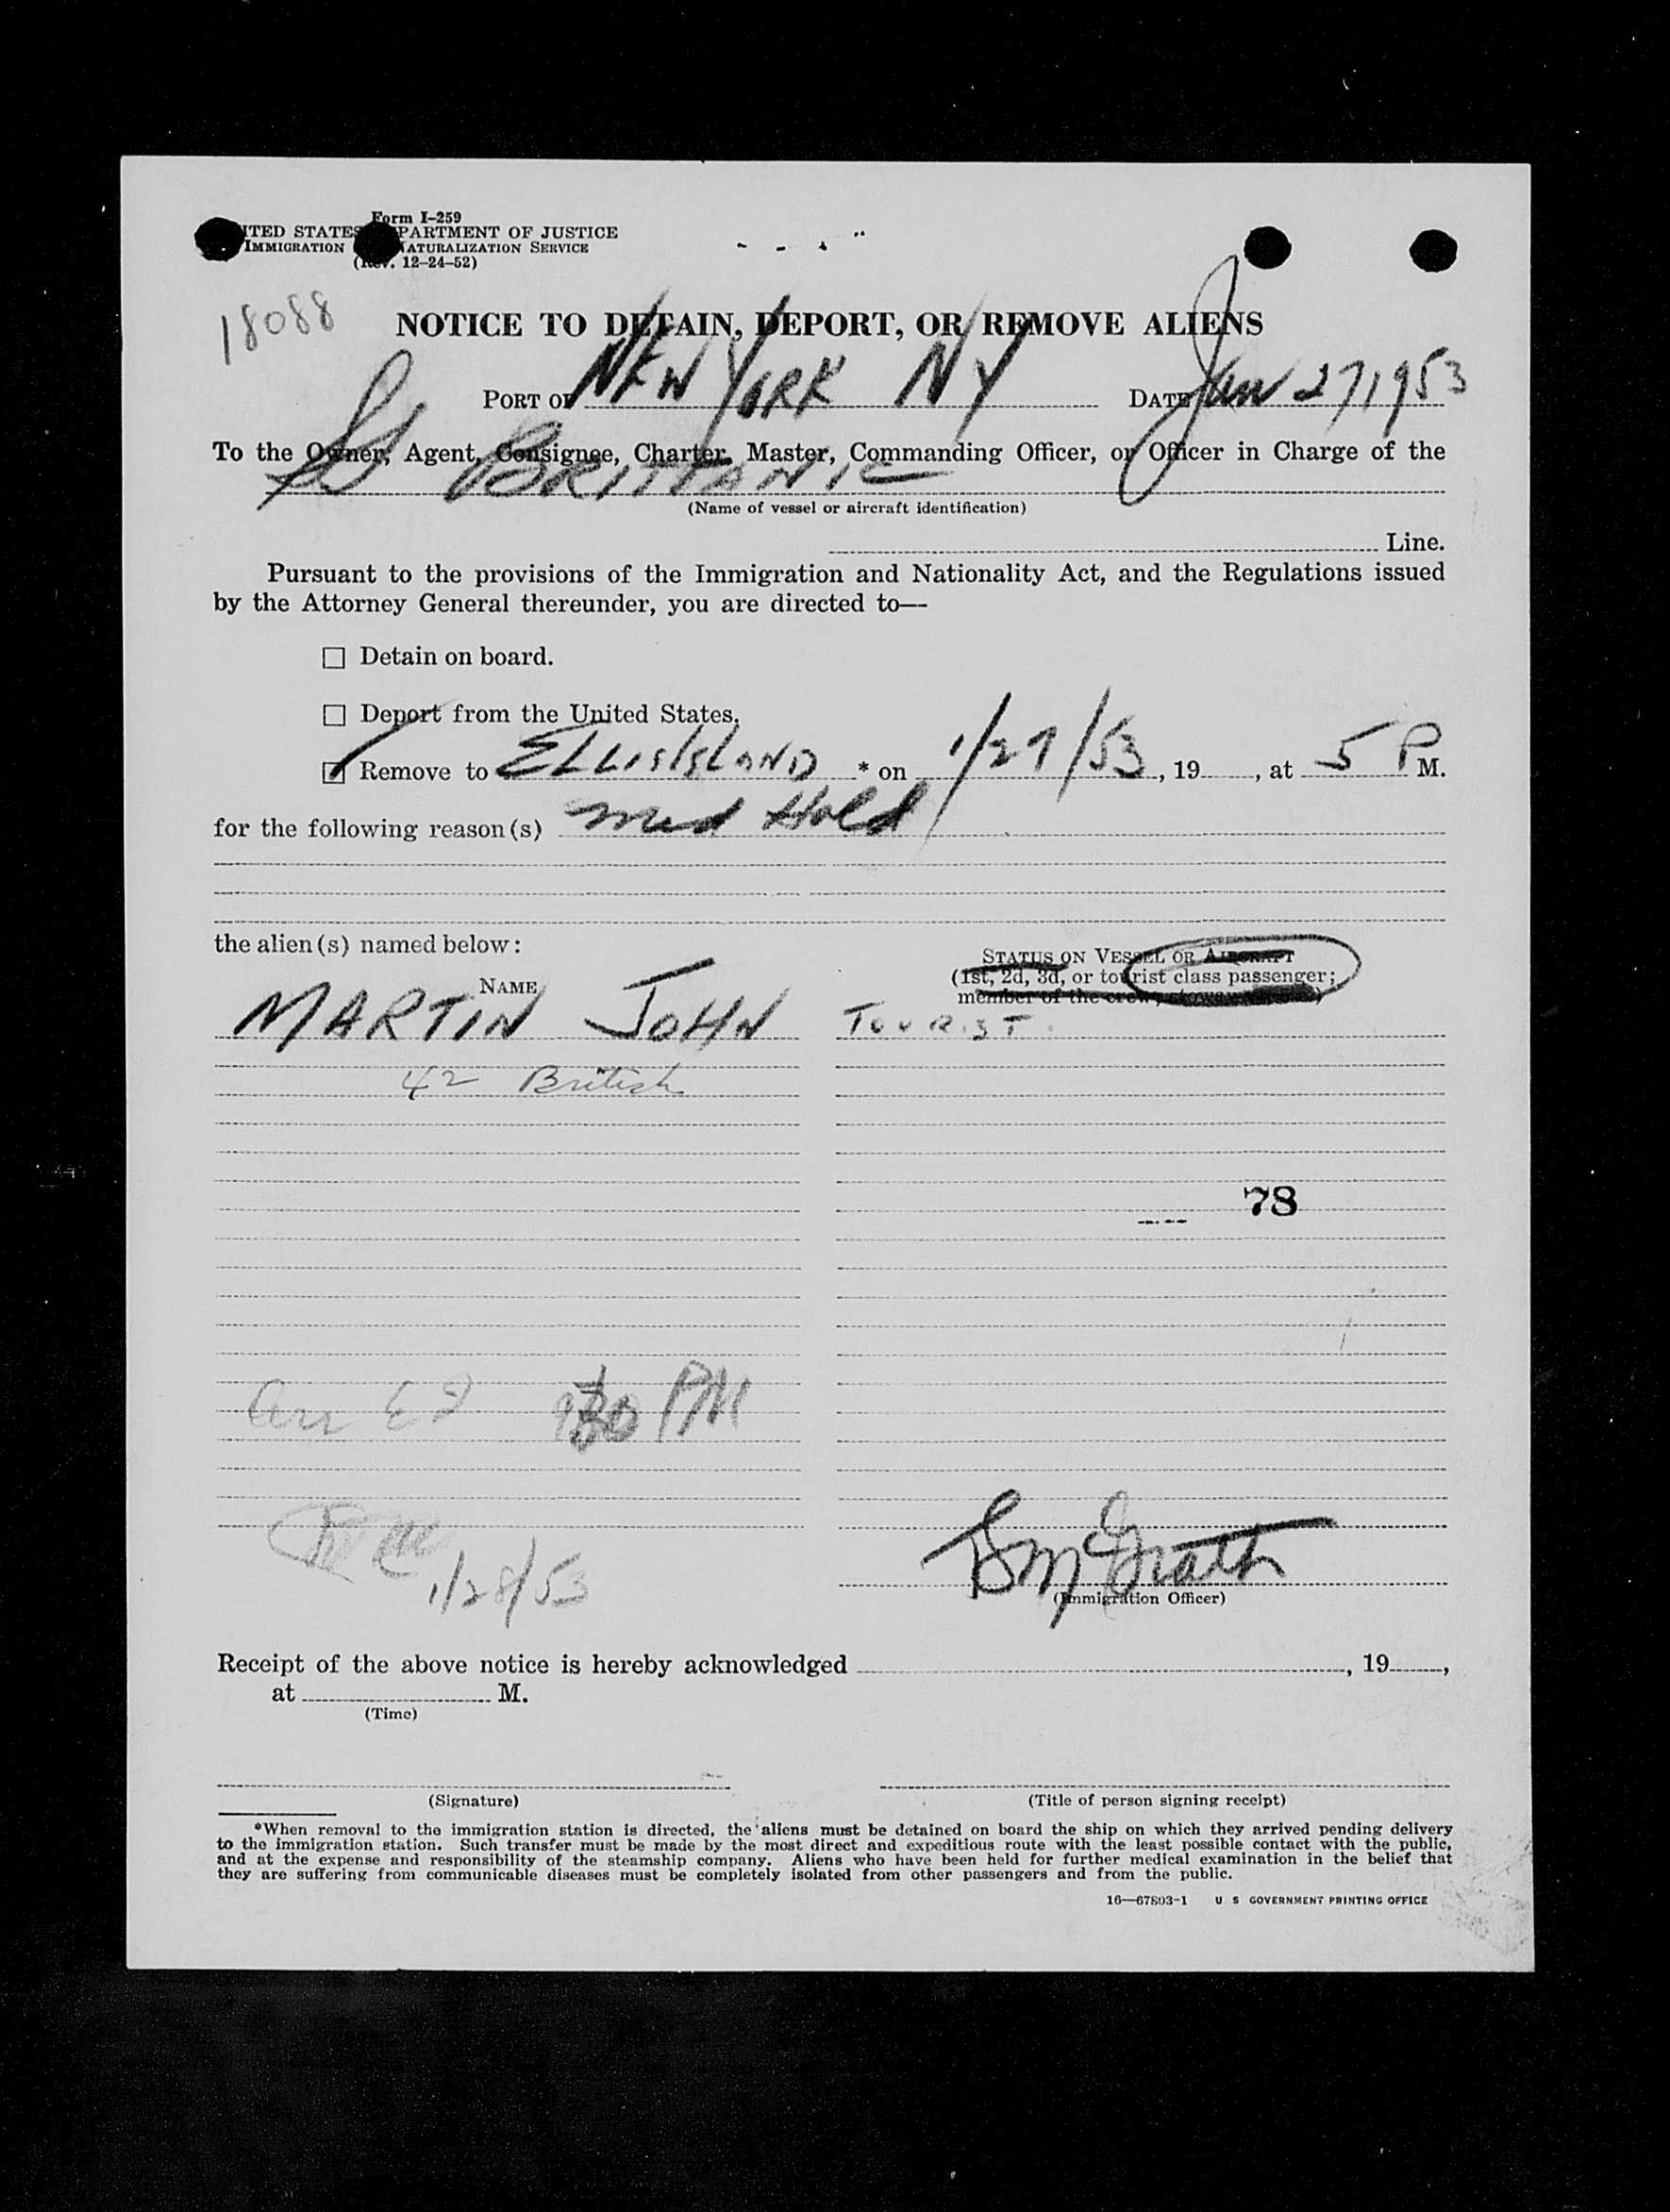 Form I-259
ITED STATES PARTMENT OF JUSTICE
IMMIGRATION NATURALIZATION SERVICE
(Rev. 12-24-52)
18088
NOTICE TO DETAIN, DEPORT, OR REMOVE ALIENS
PORT OF NEW YORK NY DATE JAN 27, 1953
To the Owner, Agent, Consignee, Charter, Master, Commanding Officer, or Officer in Charge of the
SS BRITTANIC
(Name of vessel or aircraft identification)
Line.
Pursuant to the provisions of the Immigration and Nationality Act, and the Regulations issued
by the Attorney General thereunder, you are directed to—
Detain on board.
Deport from the United States.
Remove to ELLIS ISLAND * on 1/27/53, 19 , at 5 P M.
for the following reason(s) Med Hold
the alien(s) named below:
STATUS ON VESSEL OR AIRCRAFT
(1st, 2d, 3d, or tourist class passenger;
member of the crew,
NAME
MARTIN JOHN TOURIST
42 British
78
Arr E I 930 PM
1/28/53
McGrath
(Immigration Officer)
Receipt of the above notice is hereby acknowledged , 19 ,
at M.
(Time)
(Signature) (Title of person signing receipt)
*When removal to the immigration station is directed, the aliens must be detained on board the ship on which they arrived pending delivery
to the immigration station. Such transfer must be made by the most direct and expeditious route with the least possible contact with the public,
and at the expense and responsibility of the steamship company. Aliens who have been held for further medical examination in the belief that
they are suffering from communicable diseases must be completely isolated from other passengers and from the public.
16—67803-1 U S GOVERNMENT PRINTING OFFICE